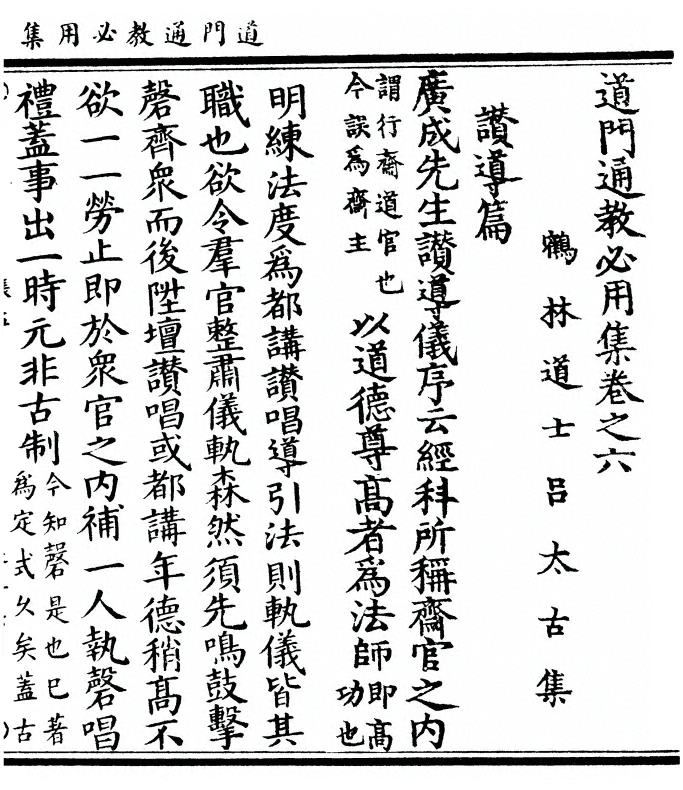 道門通教必用集
道門通教必用集卷之六
鶴林道士呂太古集
讃導篇
廣成先生讃導儀序云經科所稱齋官之内
謂行齋道官也
今誤爲齋主
以道德尊高者爲法師
即高
功也
明練法度爲都講讃唱導引法則執儀皆其
職也欲令羣官整肅儀軌森然須先鳴鼓擊
磬齊衆而後陞壇讃唱或都講年德稍高不
欲一一勞止即於衆官之内補一人執磬唱
禮蓋事出一時元非古制
今知磬是也已著
爲定式久矣蓋古